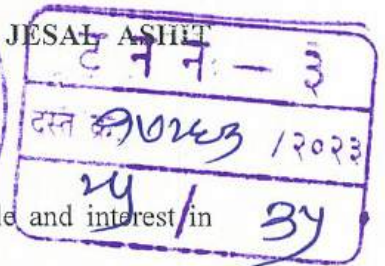 JESAL ASHIT
ट न न - ३
दस्त क्र. / २०२३
२५ / ३५
and interest in